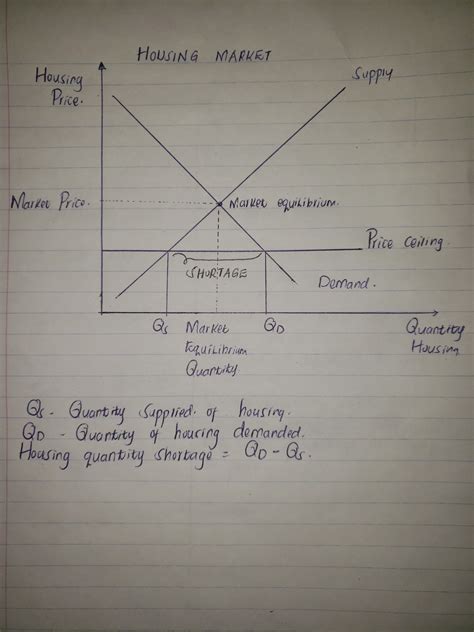 HOUSING MARKET
Housing
Price.
Supply
Market Price.
Market equilibrium.
Price ceiling
SHORTAGE
Demand.
Qs
Market
Equilibrium
Quantity
QD
Quantity
Housing
Qs - Quantity Supplied of housing.
QD - Quantity of housing demanded.
Housing quantity shortage = QD - Qs.